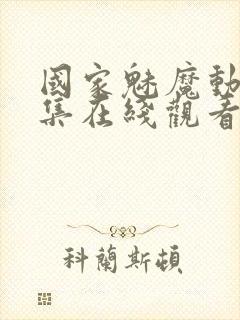 國家魅魔動
集在綫觀看
科蘭斯頓